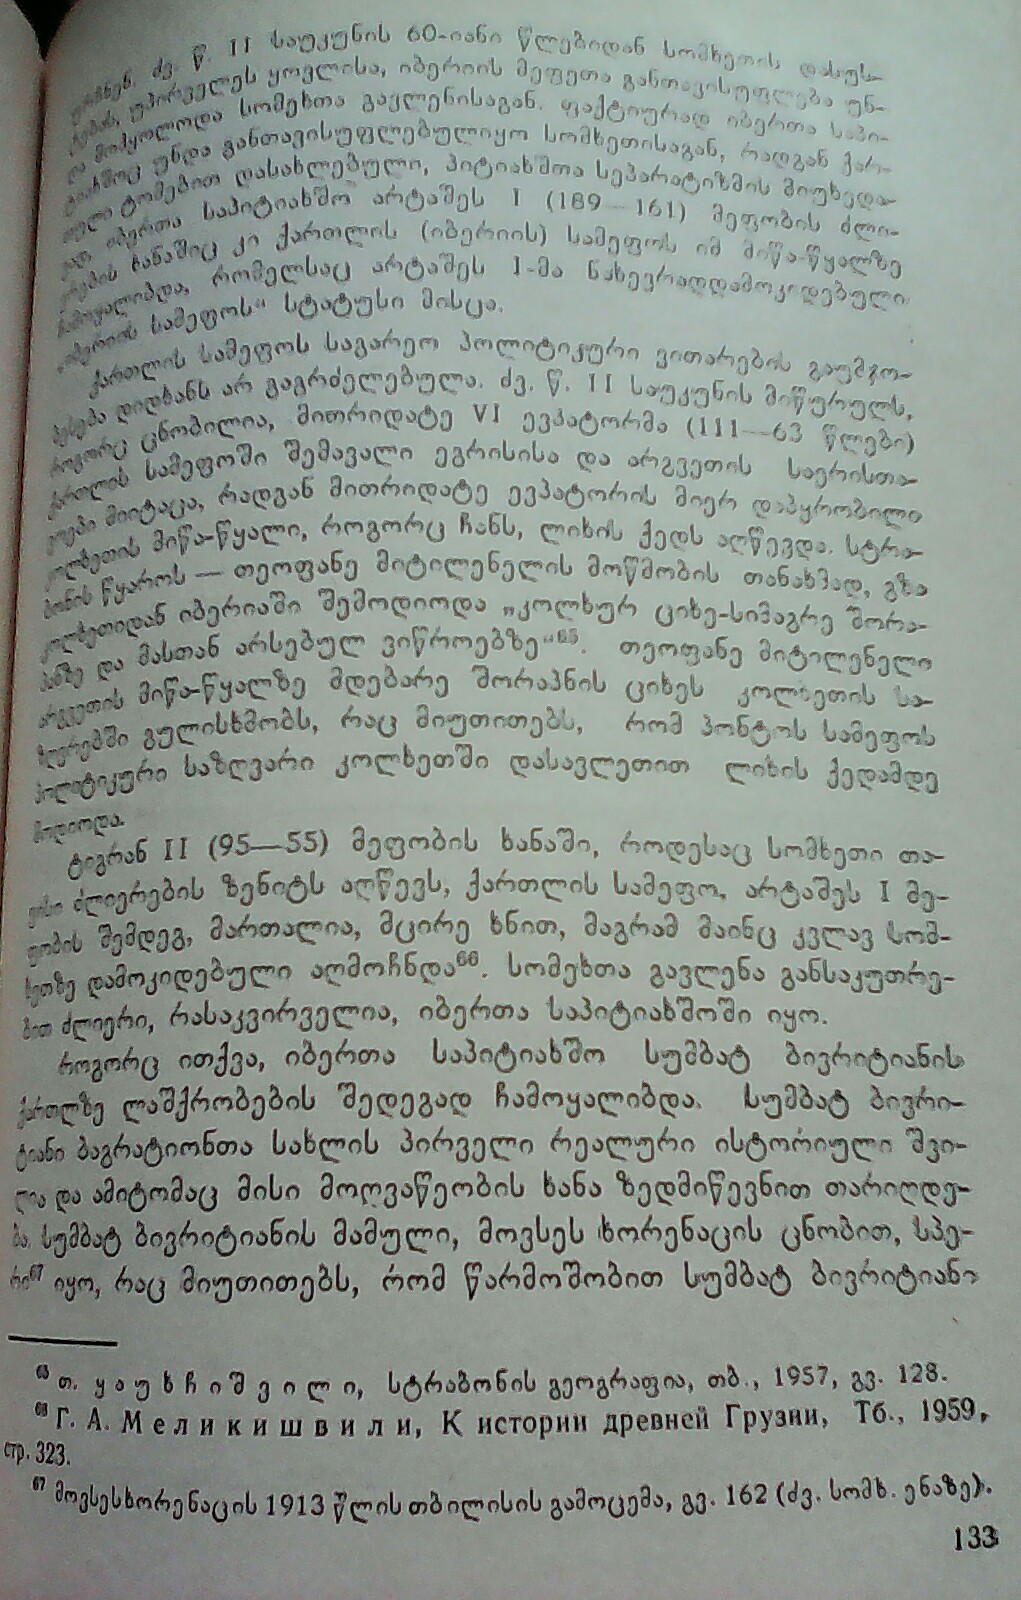 ძვ. წ. II საუკუნის 60-იანი წლებიდან სომხეთის დასუს-
უპირველეს ყოვლისა, იბერიის მეფეთა განთავისუფლება უნ-
და მოჰყოლოდა სომეხთა გავლენისაგან. ფაქტიურად იბერთა საპი-
უნდა განთავისუფლებულიყო სომხეთისაგან, რადგან ქარ-
თული ტომებით დასახლებული, პიტიახშთა სეპარატიზმის მიუხედა-
ვად, იბერთა საპიტიახშო არტაშეს I (189—161) მეფობის ძლი-
ერების ხანაშიც კი ქართლის (იბერიის) სამეფოს იმ მიწა-წყალზე
ჩამოყალიბდა, რომელსაც არტაშეს I-მა ნახევრადდამოკიდებული
„იბერიის სამეფოს“ სტატუსი მისცა.
ქართლის სამეფოს საგარეო პოლიტიკური ვითარების გაუმჯო-
ბესება დიდხანს არ გაგრძელებულა. ძვ. წ. II საუკუნის მიწურულს,
როგორც ცნობილია, მითრიდატე VI ევპატორმა (111—63 წლები)
ქართლის სამეფოში შემავალი ეგრისისა და არგვეთის საერისთა-
ვოები მიიტაცა, რადგან მითრიდატე ევპატორის მიერ დაპყრობილი
კოლხეთის მიწა-წყალი, როგორც ჩანს, ლიხის ქედს აღწევდა. სტრა-
ბონის წყაროს — თეოფანე მიტილენელის მოწმობის თანახმად, გზა
კოლხეთიდან იბერიაში შემოდიოდა „კოლხურ ციხე-სიმაგრე შორა-
პანზე და მასთან არსებულ ვიწროებზე“⁶⁵. თეოფანე მიტილენელი
არგვეთის მიწა-წყალზე მდებარე შორაპნის ციხეს კოლხეთის სა-
ზღვრებში გულისხმობს, რაც მიუთითებს, რომ პონტოს სამეფოს
პოლიტიკური საზღვარი კოლხეთში დასავლეთით ლიხის ქედამდე
მოდიოდა.
ტიგრან II (95—55) მეფობის ხანაში, როდესაც სომხეთი თა-
ვისი ძლიერების ზენიტს აღწევს, ქართლის სამეფო, არტაშეს I მე-
ფობის შემდეგ, მართალია, მცირე ხნით, მაგრამ მაინც კვლავ სომ-
ხეთზე დამოკიდებული აღმოჩნდა⁶⁶. სომეხთა გავლენა განსაკუთრე-
ბით ძლიერი, რასაკვირველია, იბერთა საპიტიახშოში იყო.
როგორც ითქვა, იბერთა საპიტიახშო სუმბატ ბივრიტიანის
ქართლზე ლაშქრობების შედეგად ჩამოყალიბდა. სუმბატ ბივრი-
ტიანი ბაგრატიონთა სახლის პირველი რეალური ისტორიული შვი-
ლია და ამიტომაც მისი მოღვაწეობის ხანა ზედმიწევნით თარიღდე-
ბა. სუმბატ ბივრიტიანის მამული, მოვსეს ხორენაცის ცნობით, სპე-
რი⁶⁷ იყო, რაც მიუთითებს, რომ წარმოშობით სუმბატ ბივრიტიანი
⁶⁵ თ. ყაუხჩიშვილი, სტრაბონის გეოგრაფია, თბ., 1957, გვ. 128.
⁶⁶ Г. А. Меликишвили, К истории древней Грузии, Тб., 1959,
стр. 323.
⁶⁷ მოვსეს ხორენაცის 1913 წლის თბილისის გამოცემა, გვ. 162 (ძვ. სომხ. ენაზე).
133